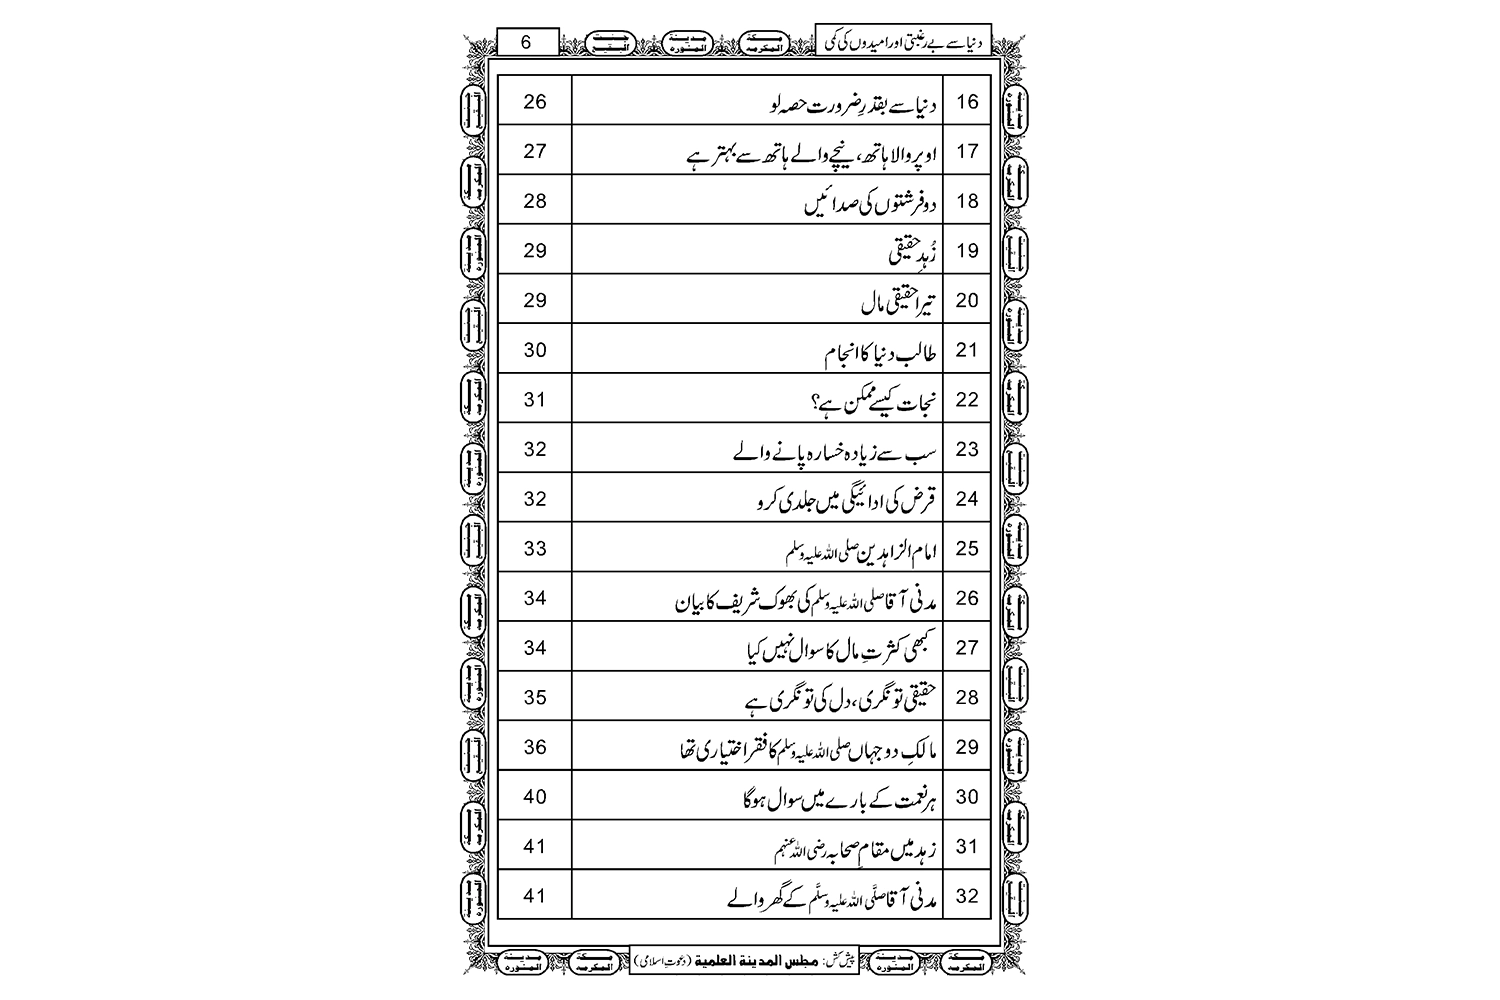 دنیا سے بے رغبتی اور امیدوں کی کمی
مکة المکرمه
مدینة المنوره
جنت البقیع
6
16 دنیا سے بقدرِ ضرورت حصہ لو 26
17 اوپر والا ہاتھ، نیچے والے ہاتھ سے بہتر ہے 27
18 دو فرشتوں کی صدائیں 28
19 زُہدِ حقیقی 29
20 تیرا حقیقی مال 29
21 طالب دنیا کا انجام 30
22 نجات کیسے ممکن ہے؟ 31
23 سب سے زیادہ خسارہ پانے والے 32
24 قرض کی ادائیگی میں جلدی کرو 32
25 امام الزاہدین صلی اللہ علیہ وسلم 33
26 مدنی آقا صلی اللہ علیہ وسلم کی بھوک شریف کا بیان 34
27 کبھی کثرتِ مال کا سوال نہیں کیا 34
28 حقیقی تونگری، دل کی تونگری ہے 35
29 مالکِ دو جہاں صلی اللہ علیہ وسلم کا فقر اختیاری تھا 36
30 ہر نعمت کے بارے میں سوال ہوگا 40
31 زہد میں مقامِ صحابہ رضی اللہ عنہم 41
32 مدنی آقا صلَّی اللہ علیہ وسلَّم کے گھر والے 41
مکة المکرمه
مدینة المنوره
پیش کش: مجلس المدینة العلمیة (دعوتِ اسلامی)
مکة المکرمه
مدینة المنوره